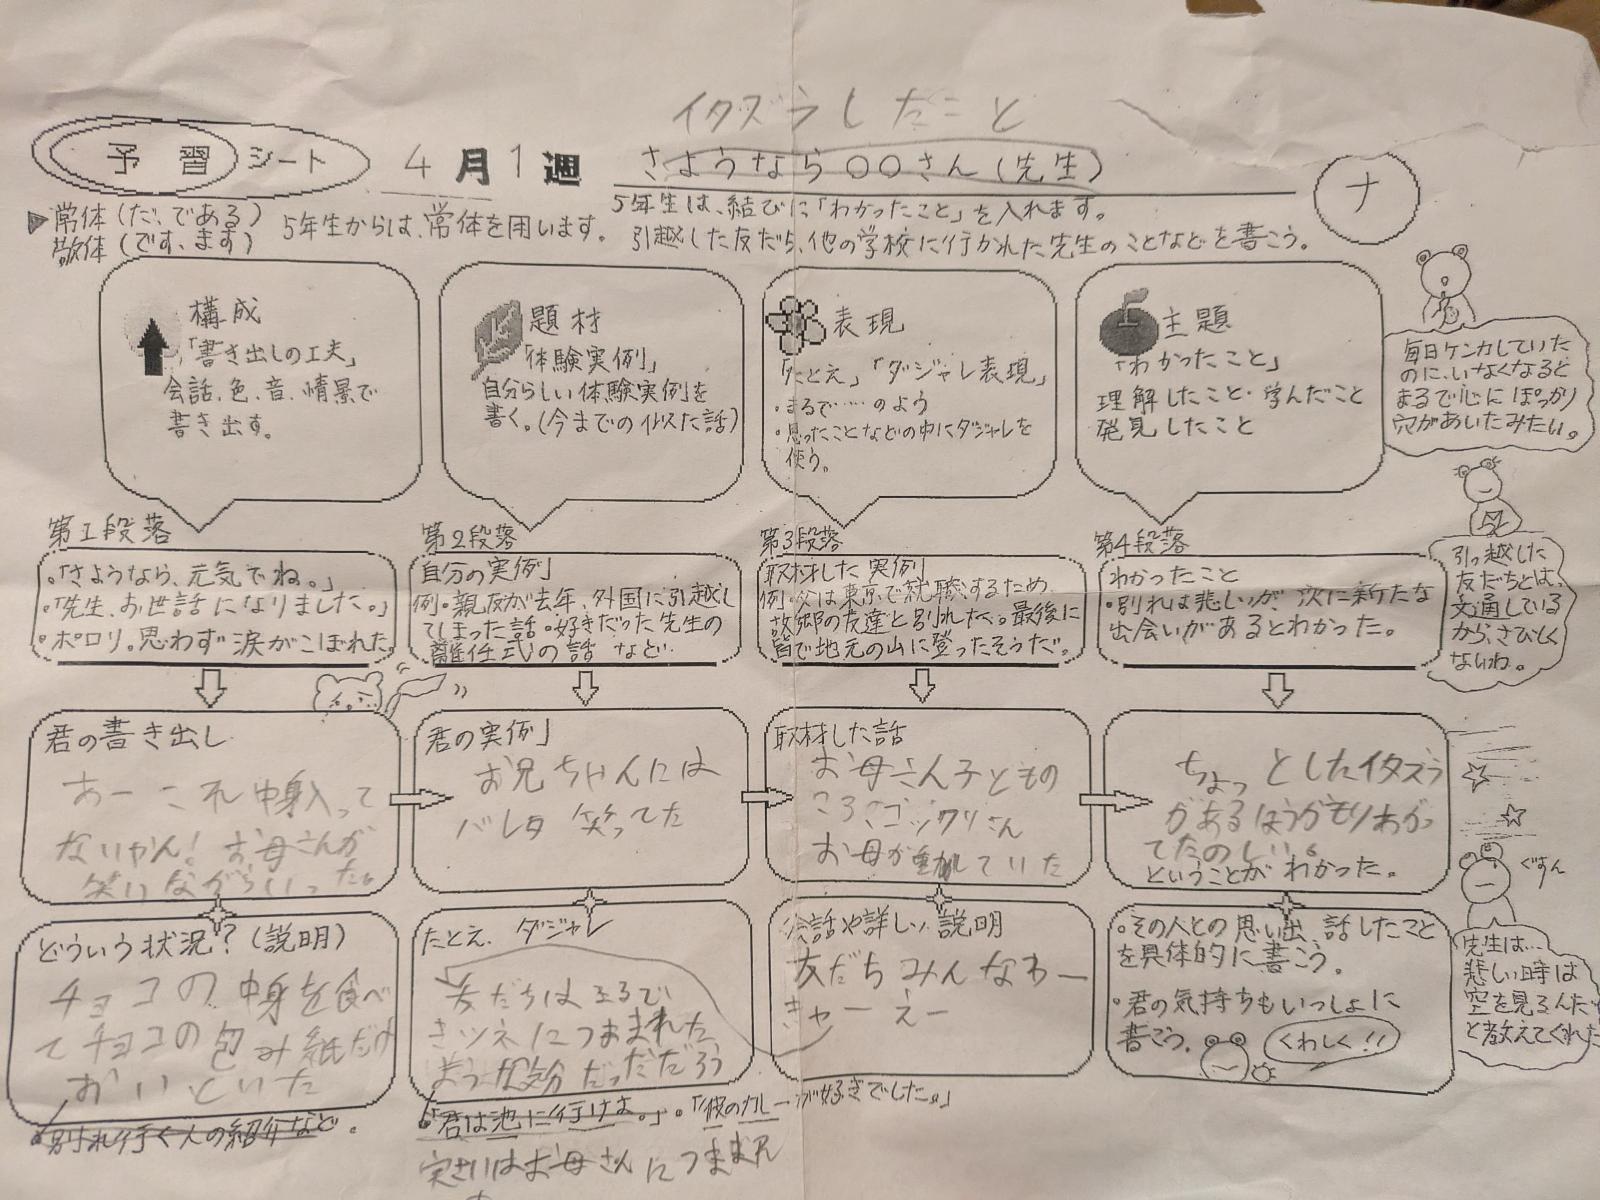 イタズラしたこと
予習シート 4月1週 さようなら○○さん(先生) ナ
▶常体(だ、である)
敬体(です、ます)
5年生からは、常体を用います。
5年生は、結びに「わかったこと」を入れます。
引越した友だち、他の学校に行かれた先生のことなどを書こう。
構成
「書き出しの工夫」
会話、色、音、情景で
書き出す。
題材
「体験実例」
自分らしい体験実例を
書く。(今までの似た話)
表現
「たとえ」「ダジャレ表現」
・まるで……のよう
・思ったことなどの中にダジャレを
使う。
主題
「わかったこと」
理解したこと・学んだこと
発見したこと
毎日ケンカしていた
のに、いなくなると
まるで心にぽっかり
穴があいたみたい。
第1段落
。「さようなら、元気でね。」
。「先生、お世話になりました。」
・ポロリ。思わず涙がこぼれた
第2段落
自分の実例」
例・親友が去年、外国に引越し
てしまった話。好きだった先生の
離任式の話 など
第3段落
取材した実例
例・父は東京で就職するため、
故郷の友達と別れたく。最後に
皆で地元の山に登ったそうだ。
第4段落
わかったこと
・別れは悲しいが、次に新たな
出会いがあるとわかった。
引っ越した
友だちとは、
文通している
から、さびしく
ないね。
君の書き出し
あー これ中身入って
ないやん! お母さんが
笑いながらいった。
君の実例」
お兄ちゃんには
バレタ 笑ってた
取材した話
お母さん子どもの
ころ
お母が
していた
ちょっとしたイタズラ
があるほうがもりあがっ
てたのしい。
ということがわかった。
どういう状況?(説明)
チョコの中身を食べ
てチョコの包み紙だけ
おいといた
・別れ行く人の紹介など。
たとえ、ダジャレ
友だちはまるで
きツネにつままれた
ような気分だっただろう
「君は池に行けよ。」。「彼のカレーが好きでした。」
実さいはお母さんにつままれ
会話や詳しい説明
友だちみんなわー
きゃーえー
。その人との思い出、話したこと
を具体的に書こう。
・君の気持ちもいっしょに
書こう。
くわしく!!
ぐすん
先生は…
悲しい時は
空を見るんだ
と教えてくれた